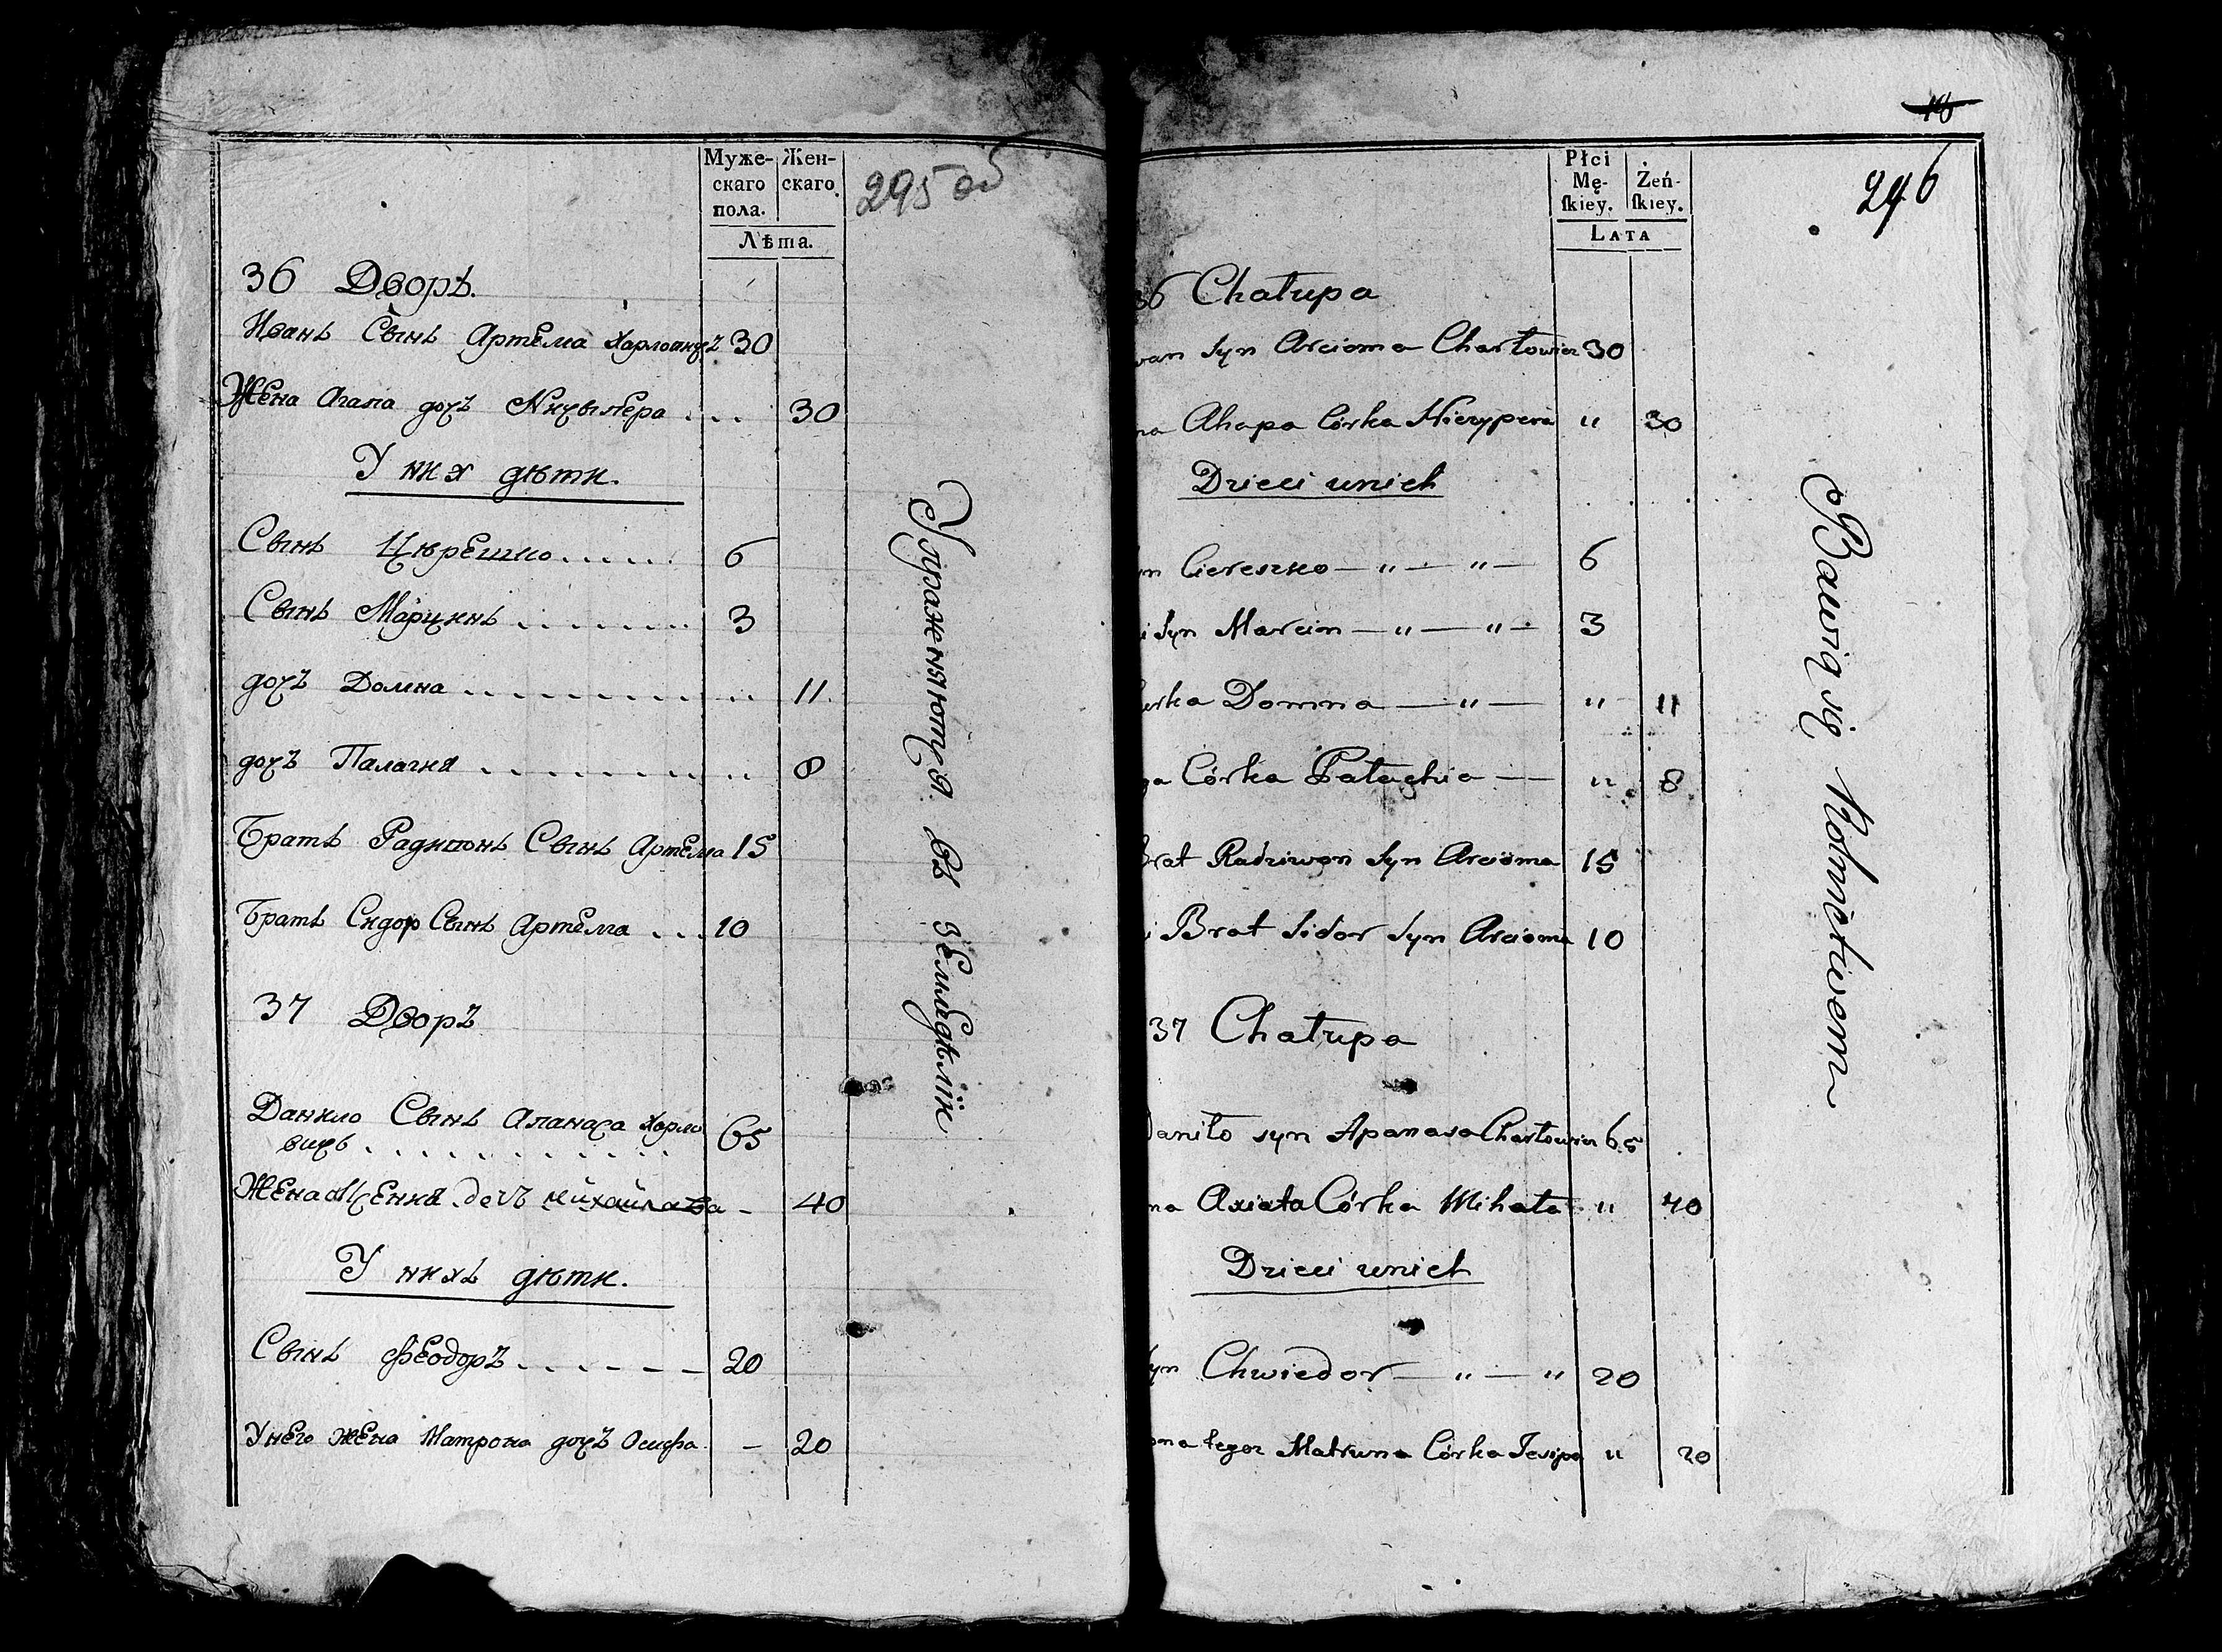 Муже-
скаго
пола.
Жен-
скаго.
Лѣта.
295 об
36 Дворъ.
Иванъ Сынъ Артема 30
Жена Агапа дочъ Ничыпера ... 30
У них дѣти.
Сынъ Цюрешко ..... 6
Сынъ Марцинъ ....... 3
дочъ Домна ......... 11.
дочъ Палагия ......... 8
Братъ Радивонъ Сынъ Артема 15
Братъ Сидор Сынъ Артема ... 10
37 Дворъ
Данило Сынъ Апанаса Харло
вичъ ............ 65
Жена дочъ михайлава - 40
У нихъ дѣти.
Сынъ Феодоръ ...... 20
У него жена Матрона дочъ Осифа - 20
Упражняютця въ земледѣліи
Płci
Mę-
ſkiey.
Żeń-
ſkiey.
LATA
18
296
36 Chałupa
wan syn Arcioma Chartowicz 30
na Ahapa Córka Niczypera " 30
Dzieci unich
yn Ciereszko — " — " — 6
i syn Marcin — " — " — 3
urka Domna — " — " 11
ga Córka Pałachia — " 8
Brat Radziwon syn Arcioma 15
i Brat Sidor syn Arcioma 10
37 Chałupa
Daniło syn Apanasa Chartowicz 65
na Axiuta Córka Mihała " 40
Dzieci unich
syn Chwiedor — " — " 20
ona tegoż Matruna Córka Jesipa " 20
Bawią się Rolnictwem